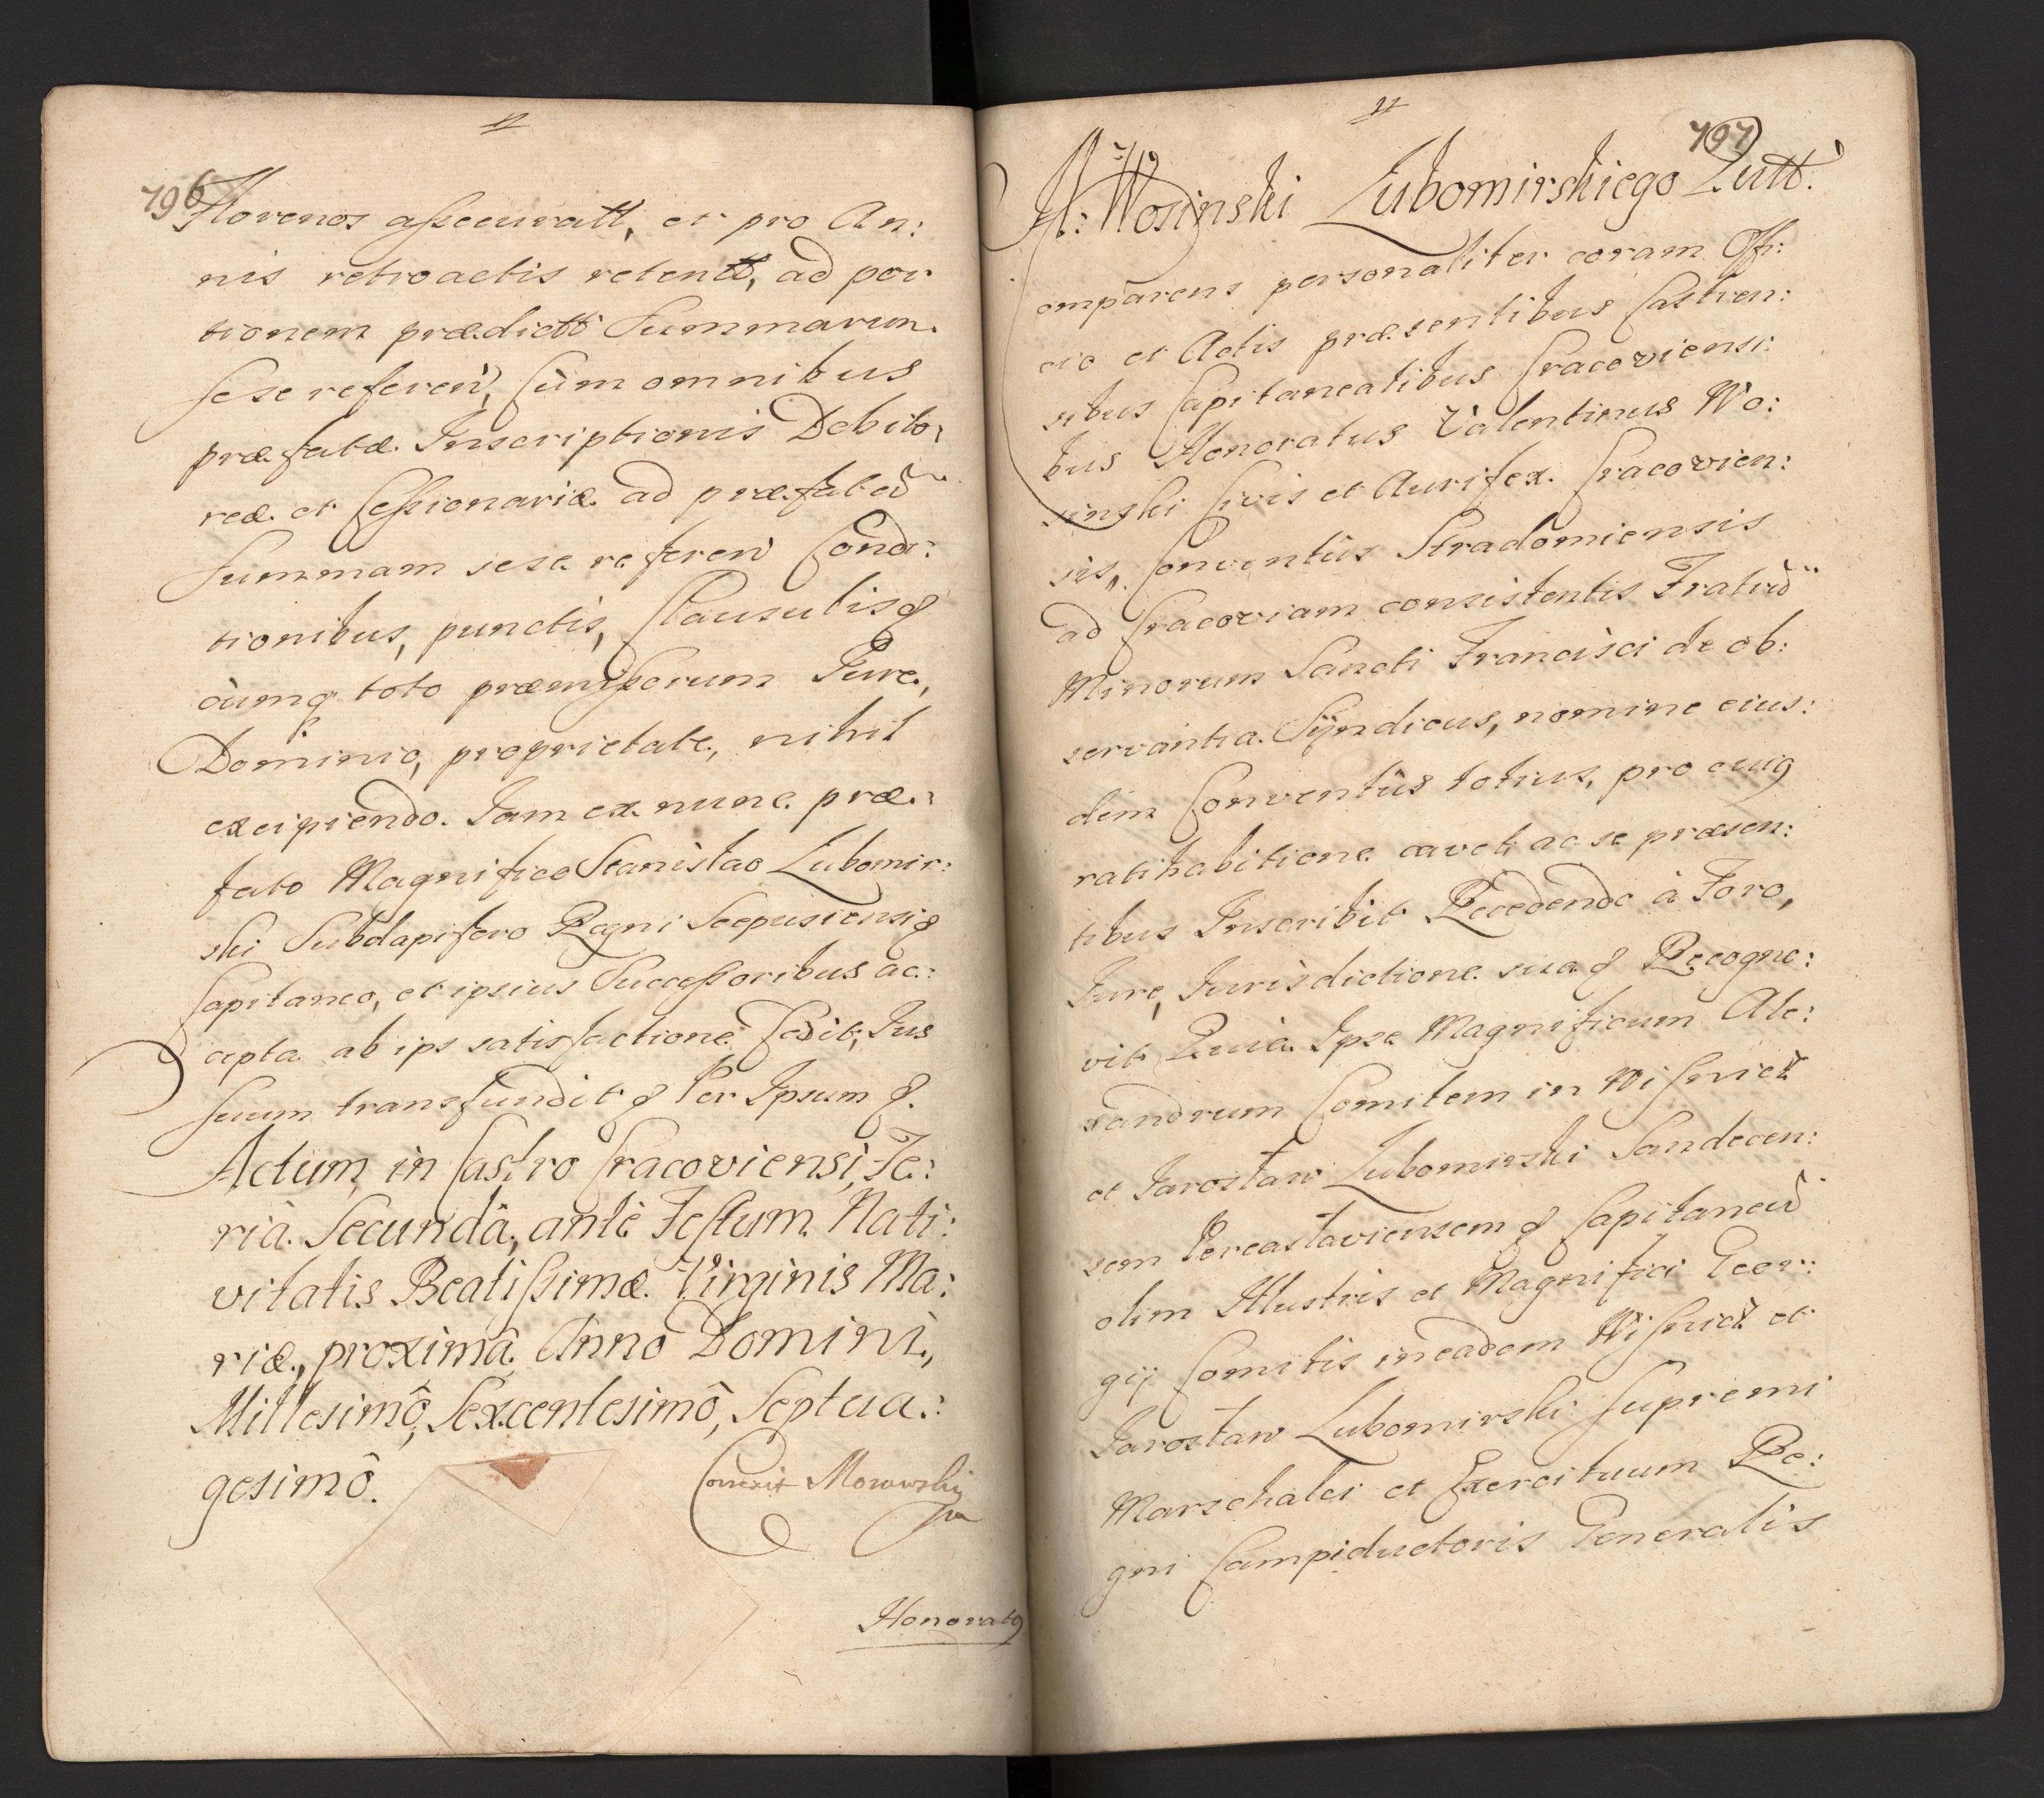 796
Florenos assecuratt, et pro An:
nis retroactis retentt, ad por
tionem prædictt Summarum
sese referen, Cum omnibus
præfatæ Inscriptionis Debito:
reæ et Cessionariæ ad præfatam
Summam sese referen Condi:
tionibus, punctis, Clausulisq
cumq toto præmissorum Jure,
Dominio, proprietate, nihil
excipiendo. Jam ex nunc præ:
fato Magnifico Stanislao Lubomir:
ski Subdapifero Regni Scepusiensiq
Capitaneo, et ipsius Successoribus ac:
cepta ab ips satisfactione Cedit, Jus
suum transfundit q Per Ipsum q.
Actum in Castro Cracoviensi, Fe:
riâ Secundâ, ante Festum Nati:
vitatis Beatissimæ Virginis Ma:
riæ, proximâ Anno Domini,
Millesimô, Sexcentesimô, Septua:
gesimô.
Correxit Morawski
Honoratq
797
A: Wosinski Lubomirskiego Quitt.
omparens personaliter coram Offi:
cio et Actis præsentibus Castren:
sibus Capitanealibus Cracoviensi:
bus Honoratus Valentinus Wo:
sinski Civis et Aurifex Cracovien:
sis, Conventûs Stradomiensis
ad Cracoviam consistentis Fratrum
Minorum Sancti Francisci de ob:
servantia Syndicus, nomine eius:
dem Conventûs totius, pro cuiq
ratihabitione cavet ac se præsen:
tibus Inscribit Recedendo à Foro,
Jure, Jurisdictione sua q Recogno:
vit Quia Ipse Magnificum Ale:
xandrum Comitem in Wisnicz
et Jarosław Lubomirski Sandecen:
sem Pereasłaviensem q Capitaneum
olim Illustris et Magnifici Geor:
gij Comitis in eadem Wisnicz et
Jarosław Lubomirski Supremi
Marschalci et Exercituum Re:
gni Campiductoris Generalis